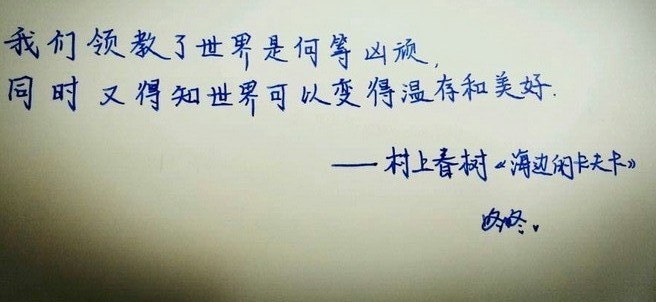 我们领教了世界是何等凶顽,
同时又得知世界可以变得温存和美好.
——村上春树《海边的卡夫卡》